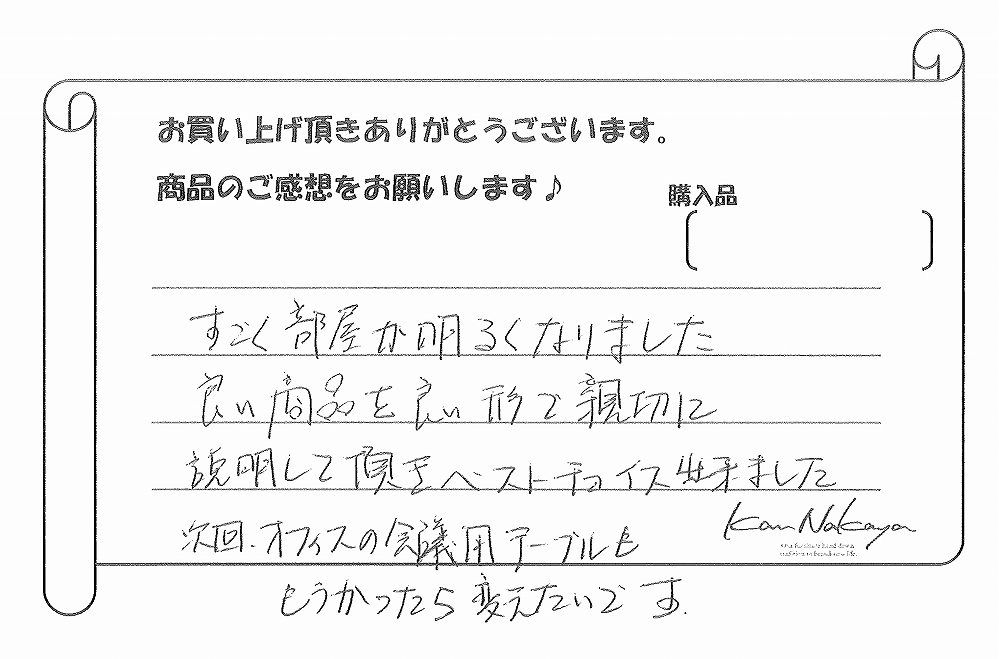 お買い上げ頂きありがとうございます。
商品のご感想をお願いします♪
購入品
すごく部屋が明るくなりました
良い商品を良い形で親切に
説明して頂きベストチョイス出来ました
次回、オフィスの会議用テーブルも
もうかったら変えたいです。
Kan Nakaya